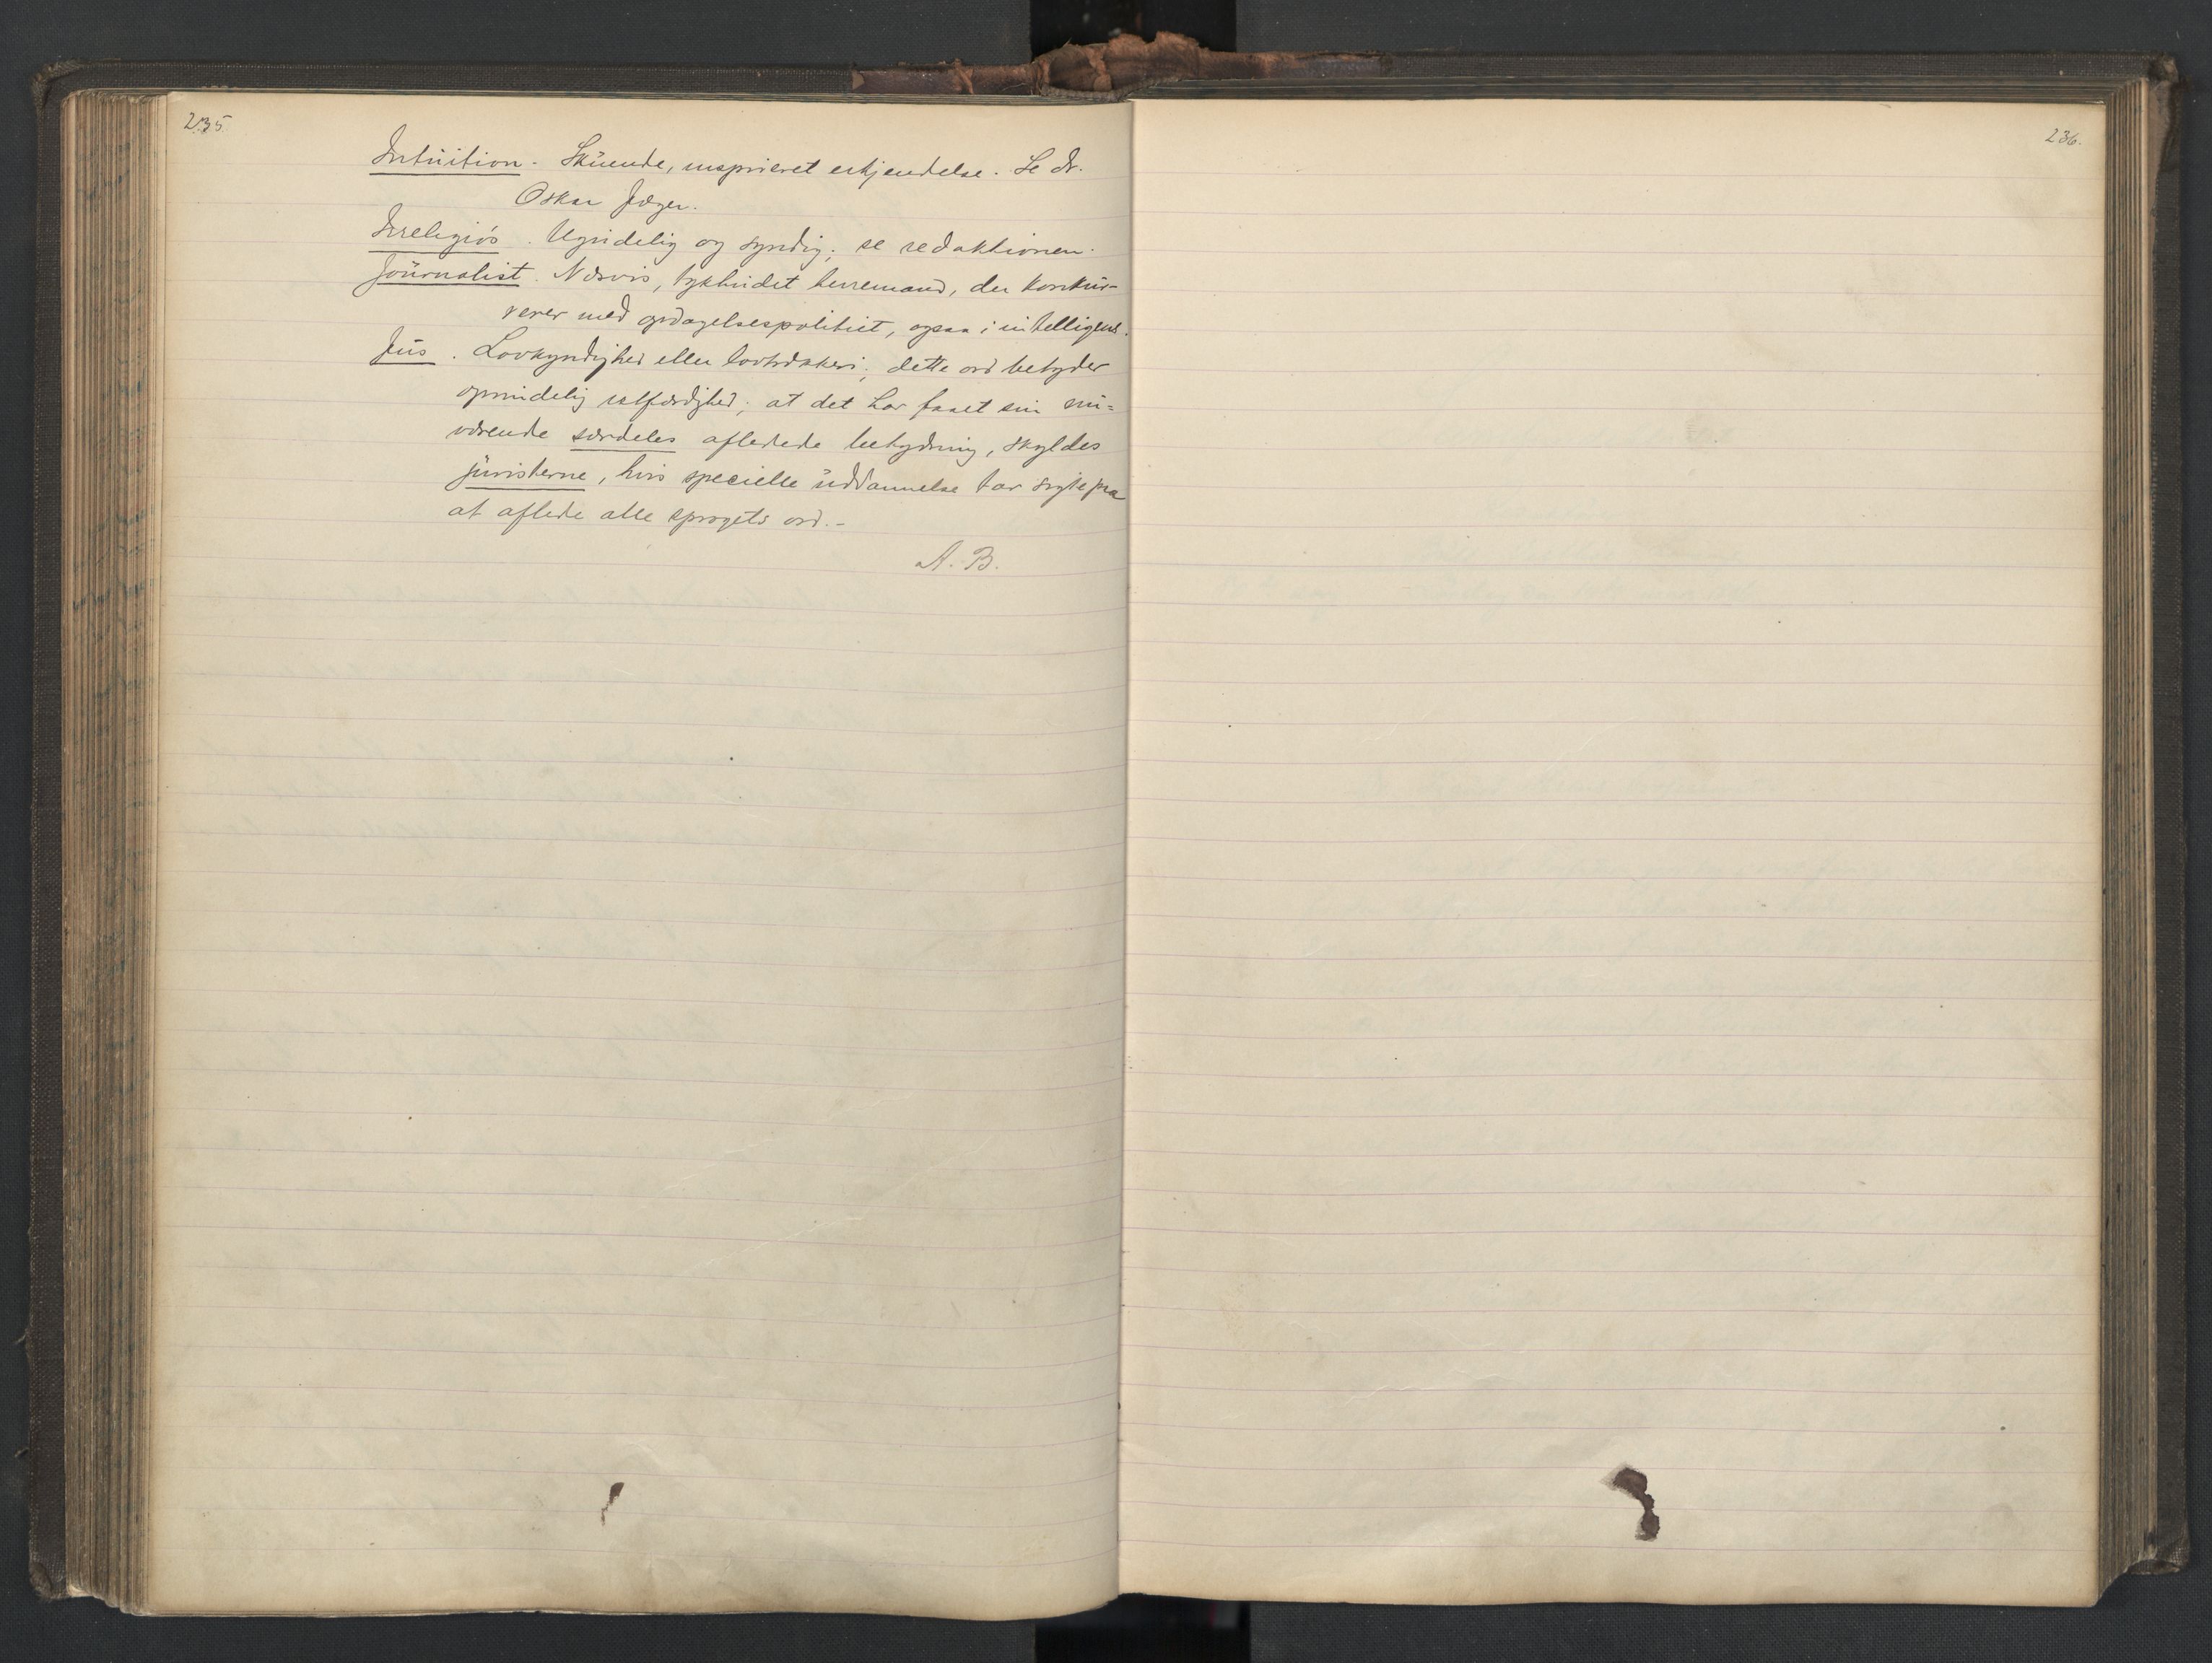 235.
Intuition. Skuende, inspireret erkjendelse. Se dr.
Oskar Jæger.
Irreligiøs. Ugudelig og syndig; se redaktionen.
Journalist. Næsvis, tykhudet herremand, der konkur-
rerer med opdagelsespolitiet, ogsaa i intelligens.
Jus. Lovkyndighed eller lovtrækkeri; dette ord betyder
oprindelig retfærdighed; at det har faaet sin nu-
værende særdeles afledede betydning, skyldes
juristerne, hvis specielle uddannelse tar sigte paa
at aflede alle sprogets ord.-
A. B.
236.